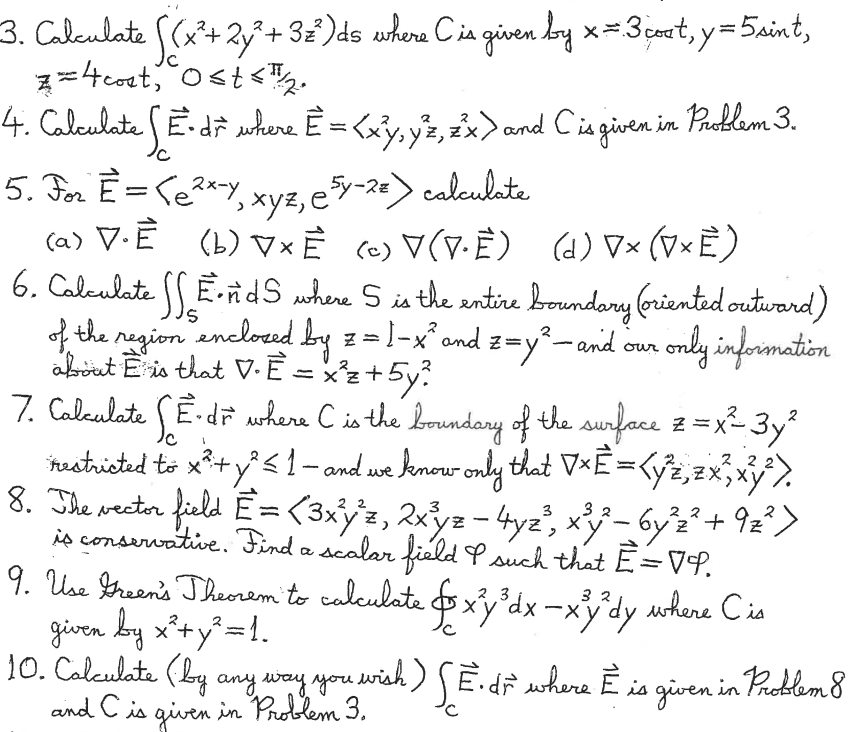 3. Calculate ∫_C (x²+2y²+3z²)ds where C is given by x=3cost, y=5sint,
z=4cost, 0≤t≤π/2.
4. Calculate ∫_C E⃗·dr⃗ where E⃗=<x²y, y²z, z²x> and C is given in Problem 3.
5. For E⃗=<e^(2x-y), xyz, e^(5y-2z)> calculate
(a) ∇·E⃗ (b) ∇×E⃗ (c) ∇(∇·E⃗) (d) ∇×(∇×E⃗)
6. Calculate ∬_S E⃗·n⃗ dS where S is the entire boundary (oriented outward)
of the region enclosed by z=1-x² and z=y² — and our only information
about E⃗ is that ∇·E⃗ = x²z+5y².
7. Calculate ∫_C E⃗·dr⃗ where C is the boundary of the surface z=x²-3y²
restricted to x²+y²≤1 — and we know only that ∇×E⃗=<y²z, zx², x²y²>.
8. The vector field E⃗=<3x²y²z, 2x³yz-4yz³, x³y²-6y²z²+9z²>
is conservative. Find a scalar field φ such that E⃗=∇φ.
9. Use Green's Theorem to calculate ∮_C x²y³dx-x³y²dy where C is
given by x²+y²=1.
10. Calculate (by any way you wish) ∫_C E⃗·dr⃗ where E⃗ is given in Problem 8
and C is given in Problem 3.